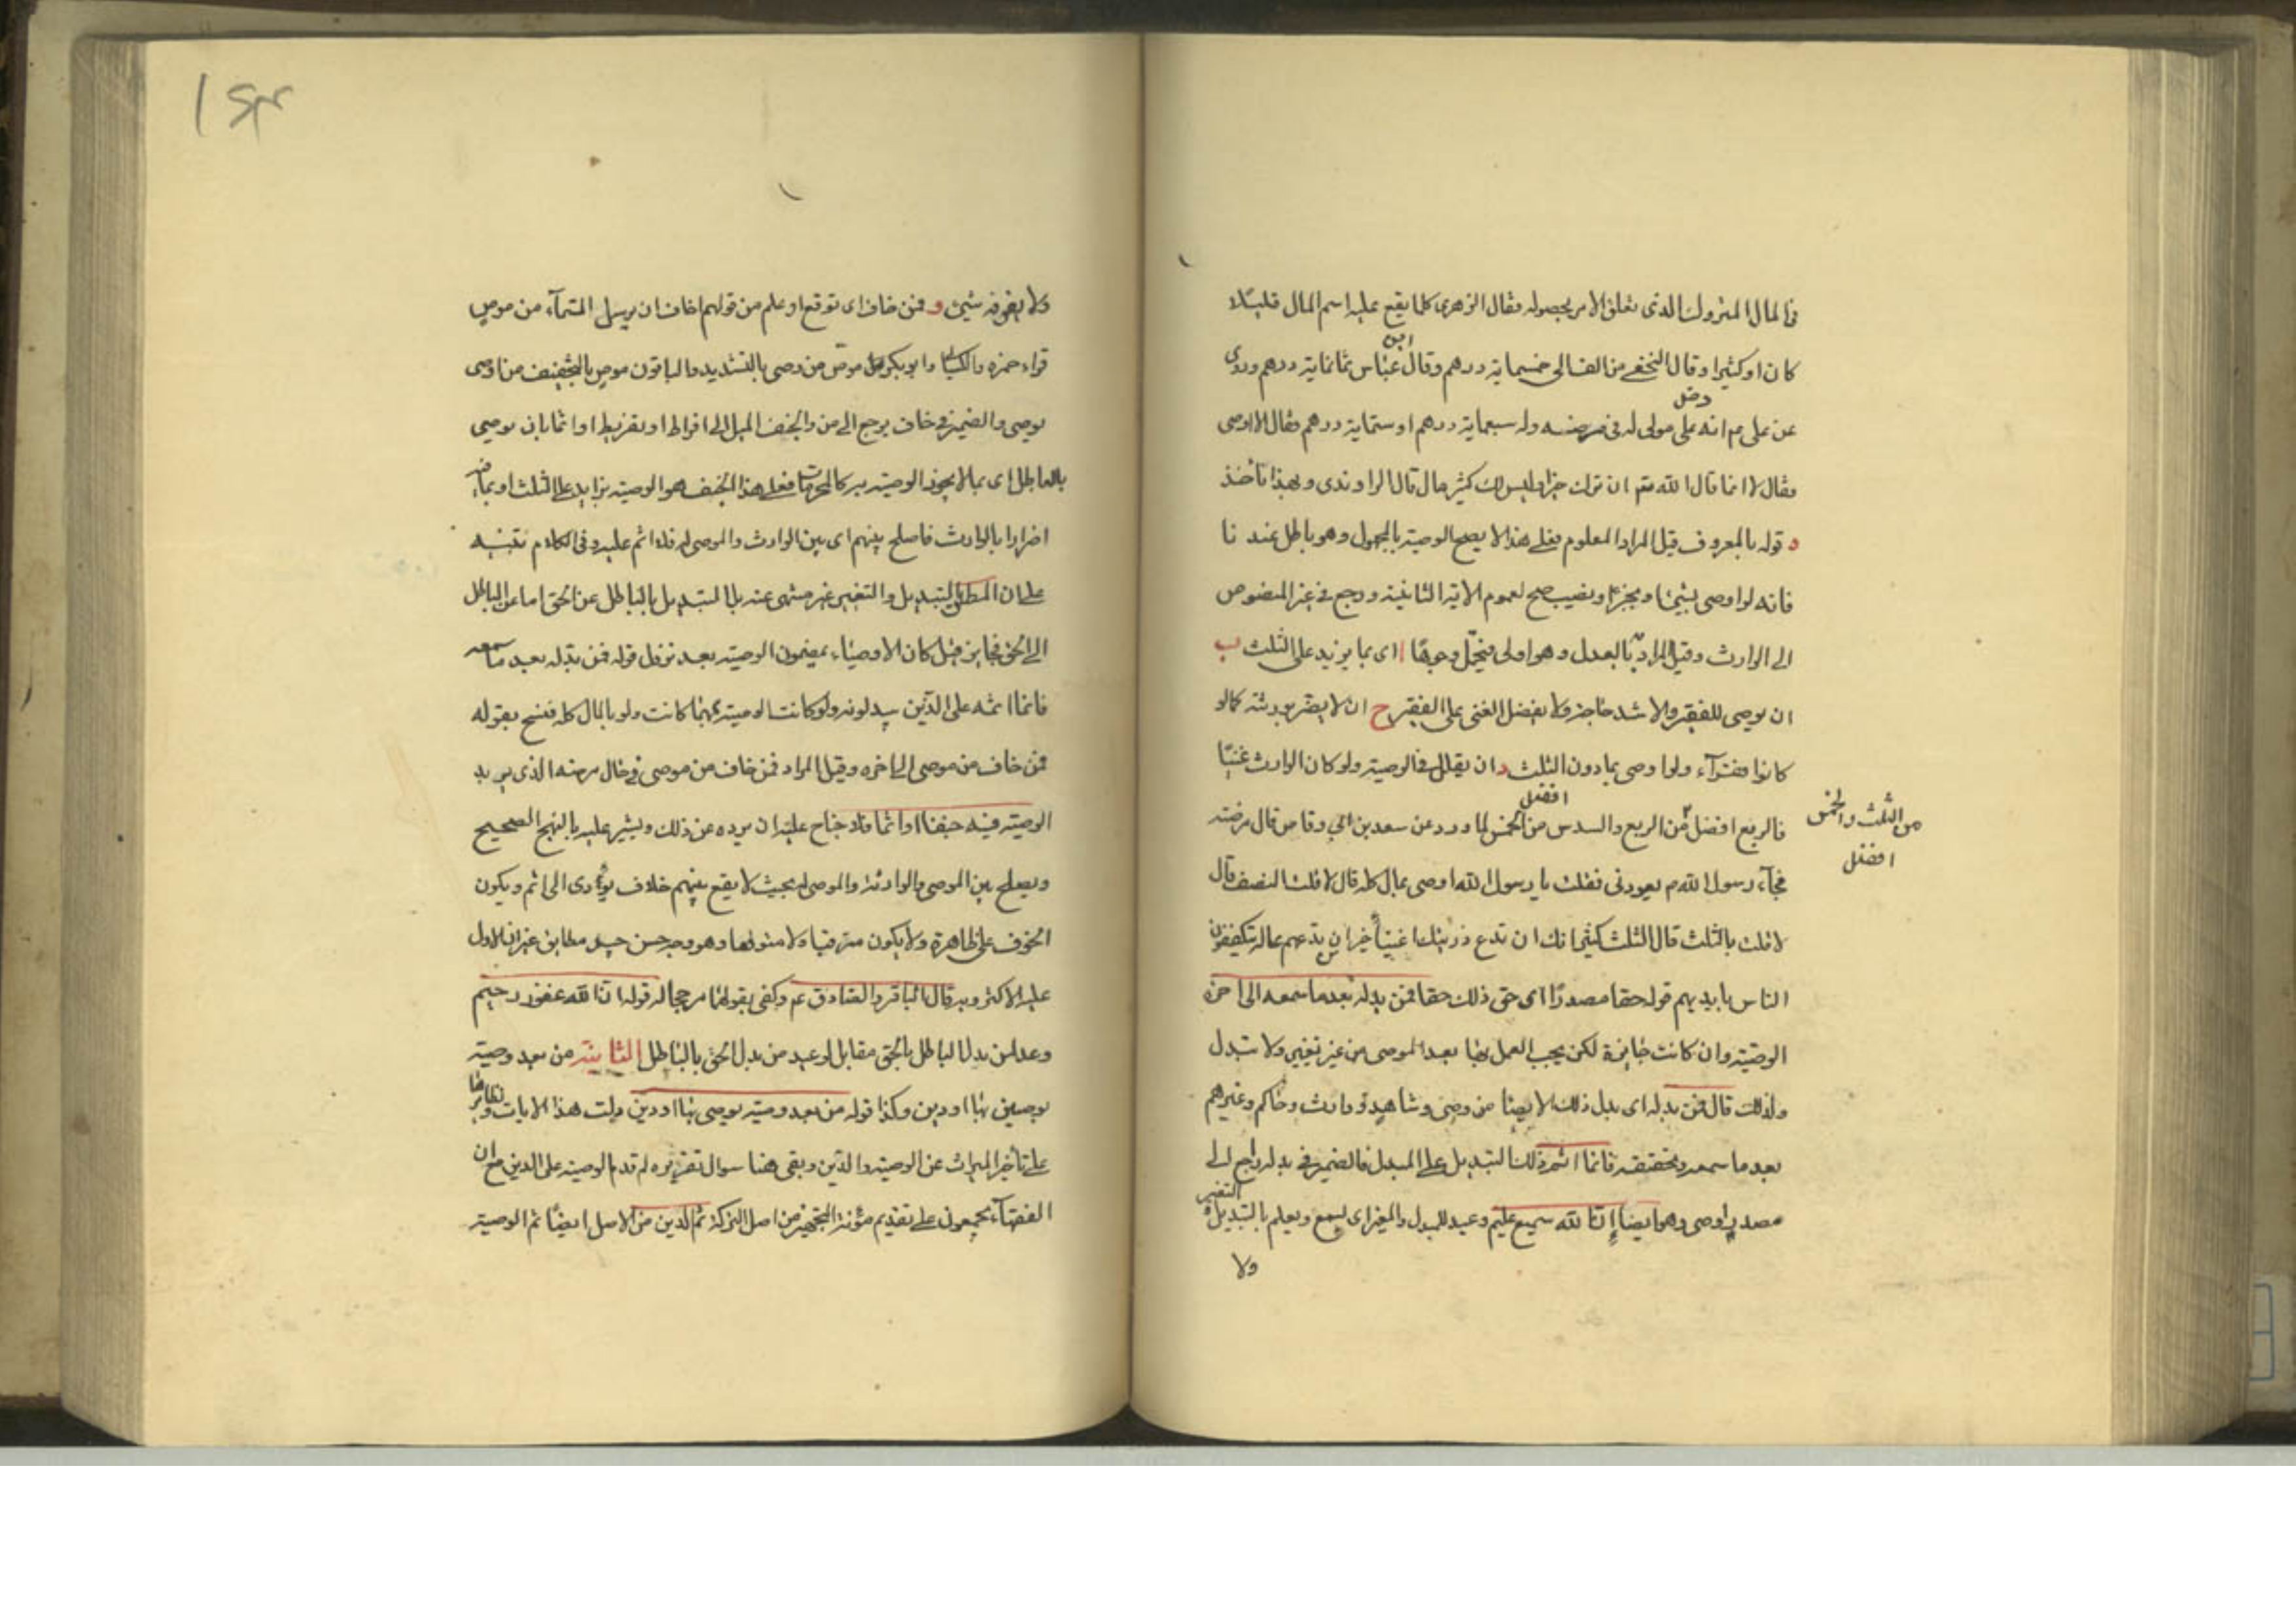 في المال المتروك الذي تعلق الامر بحصوله فقال الزهري كلما يقع عليه اسم المال قليلا
كان او كثيرا وقال النخعي من الف الى خمسماية درهم وقال ابن عباس ثمانماية درهم وروى
عن علي عم انه دخل على مولى له في مرضه وله سبعماية درهم او ستماية درهم فقال الا اوصي
فقال لا انما قال الله تعم ان ترك خيرا وليس لك كثير مال قال الراوندي وبهذا نأخذ
د قوله بالمعروف قيل المراد المعلوم فعلى هذا لا يصح الوصية بالمجهول وهو باطل عندنا
فانه لو اوصى بشيئ او بجزء او نصيب صح لعموم الاية الثانية ورجع في غير المنصوص
الى الوارث وقيل المراد بالعدل وهو اولى فيحتمل وجوها ا اي بما يزيد على الثلث ب
ان يوصي للفقير والاشد حاجة ولا يفضل الغني على الفقير ج ان لا يضر بورثته كما لو
كانوا فقرآء ولو اوصى بما دون الثلث د ان يقال في الوصية ولو كان الوارث غنيا
فالربع افضل من الثلث والخمس افضل من الربع والسدس افضل من الخمس لما ورد عن سعد بن ابي وقاص قال مرضت
فجآء رسول الله ص يعودني فقلت يا رسول الله اوصي بمالي كله قال لا قلت النصف قال
لا قلت بالثلث قال الثلث كثير انك ان تدع ذريتك اغنيآء خير ان تدعهم عالة يتكففون
الناس بايديهم قوله حقا مصدرا اي حق ذلك حقا فمن بدله بعد ما سمعه الى اخره
الوصية وان كانت جايزة لكن يجب العمل بها بعد الموصي من غير تغيير ولا تبدل
ولذلك قال فمن بدله اي بدل ذلك الايصا من وصي وشاهد او وارث وحاكم وغيرهم
بعد ما سمعه وتحققه فانما اثم ذلك التبديل على المبدل فالضمير في بدله راجع الى
مصدر اوصى وهو ايضا ان الله سميع عليم وعيد للمبدل والمغير اي يسمع ويعلم بالتبديل والتغيير
ولا
ولا يفوته شيئ و فمن خاف اي توقع او علم من قولهم اخاف ان يرسل السمآء من موص
قراء حمزه والكسائي وابو بكر موص من وصى بالتشديد والباقون موص بالتخفيف من اوصى
يوصي والضمير في خاف يرجع الى من والجنف الميل الى افراط او تفريط او اثما بان يوصي
بالباطل اي بما لا يجوز الوصية به كالمحرمات فعلى هذا الجنف هو الوصية بزايد على الثلث او بما فيه
اضرارا بالوارث فاصلح بينهم اي بين الوارث والموصى له فلا اثم عليه وفي الكلام تنبيه
على ان المطلق التبديل والتغيير غير منهي عنه بل التبديل بالباطل عن الحق اما عن الباطل
الى الحق فجايز قيل كان الاوصياء يمضون الوصية بعد نزول قوله فمن بدله بعد ما سمعه
فانما اثمه على الذين يبدلونه ولو كانت الوصية مهما كانت ولو بالمال كله فنسخ بقوله
فمن خاف من موصي الى اخره وقيل المراد فمن خاف من موصي في حال مرضه الذي يريد
الوصية فيه جنفا او اثما فلا جناح عليه ان يرده عن ذلك ويشير عليه بالنهج الصحيح
ويصلح بين الموصي والوارثة والموصى له بحيث لا يقع بينهم خلاف يؤدي الى اثم ويكون
الخوف على ظاهره ولا يكون مترقبا ولا متوقعا وهو وجه حسن جيد مطابق غير ان الاول
عليه الاكثر وبه قال الباقر والصادق عم وكفى بقولهما مرجحا له قوله ان الله غفور رحيم
وعد لمن بدل الباطل بالحق مقابل لوعيد من بدل الحق بالباطل الثانية من بعد وصية
يوصين بها او دين وكذا قوله من بعد وصية يوصي بها او دين دلت هذا الايات ونظايرها
على تأخير الميراث عن الوصية والدين وبقي هنا سوال تقريره لم قدم الوصية على الدين مع ان
الفقهآء يجمعون على تقديم مؤنة التجهيز من اصل التركة ثم الدين من الاصل ايضا ثم الوصية